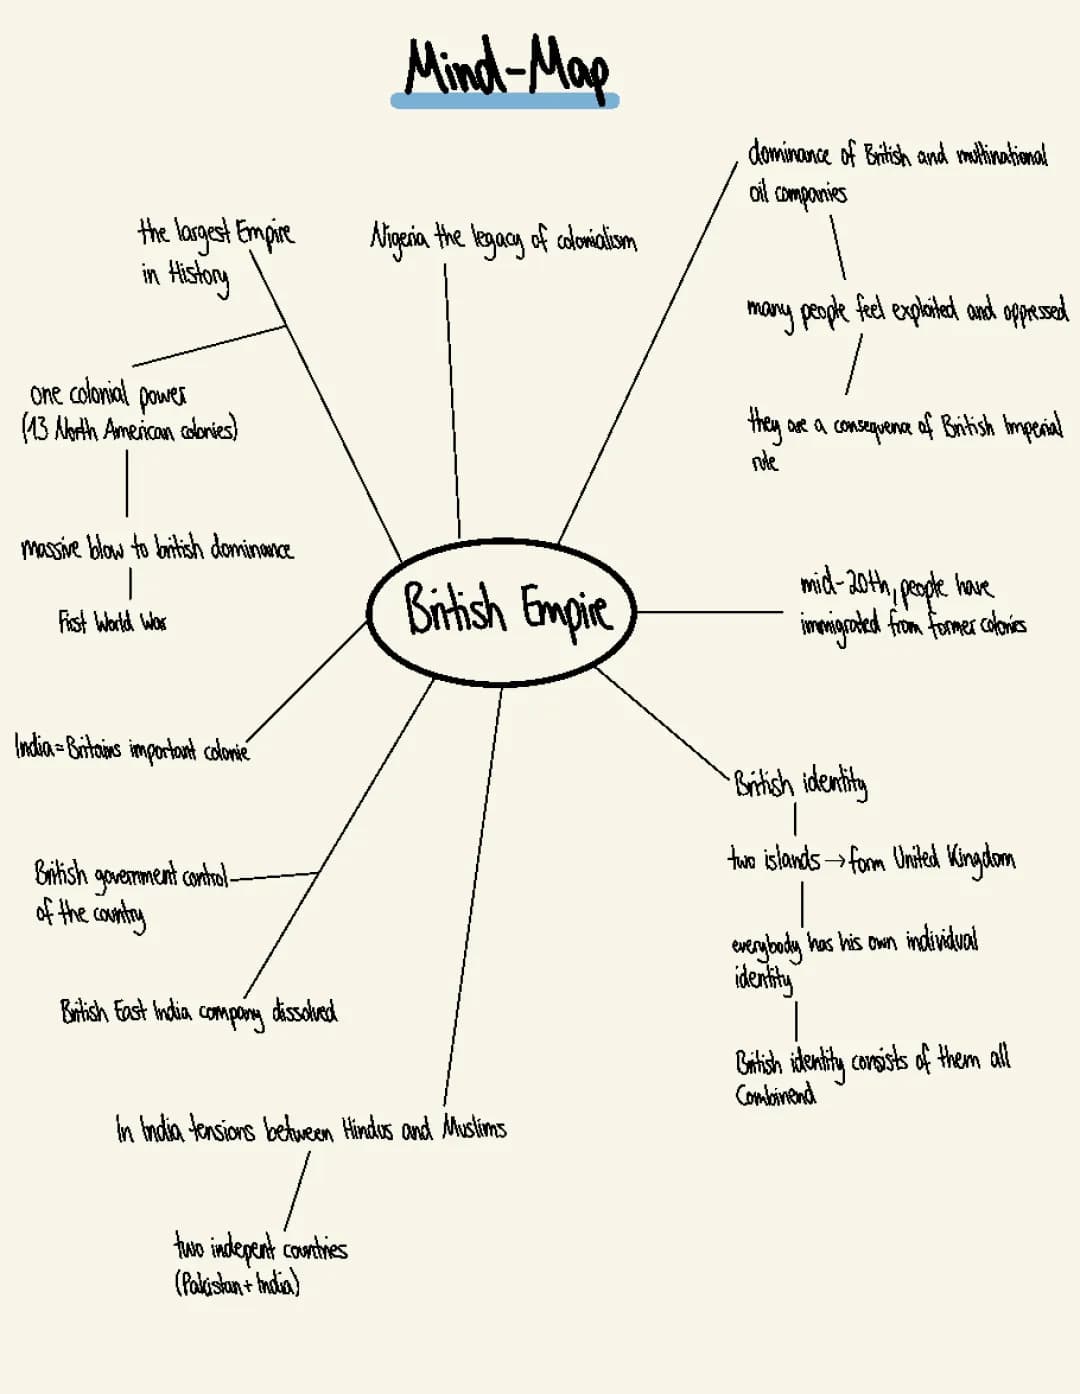 Mind-Map
the largest Empire
in History
Nigeria the legacy of colonialism
dominance of British and multinational
oil companies
many people feel exploited and oppressed
they are a consequence of British Imperial
rule
one colonial power
(13 North American colonies)
massive blow to british dominance
First World War
British Empire
mid-20th, people have
immigrated from former colonies
India=Britains important colonie
British identity
two islands → form United Kingdom
everybody has his own individual
identity
British identity consists of them all
Combinend
British government control
of the country
British East India company dissolved
In India tensions between Hindus and Muslims
two indepent countries
(Pakistan + India)